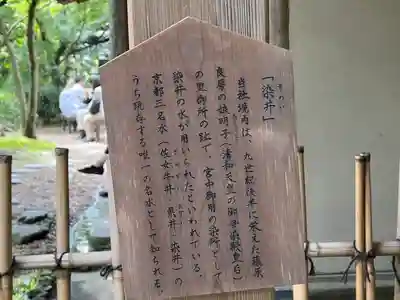 「染井」
そめのい
当社境内は、九世紀後半に栄えた藤原
良房の娘明子(清和天皇の御母・染殿皇后)
の里御所の趾で、宮中御用の染所として
染井の水が用いられたといわれている。
京都三名水(佐女牛井 県井 染井)の
うち現存する唯一の名水として知られる。